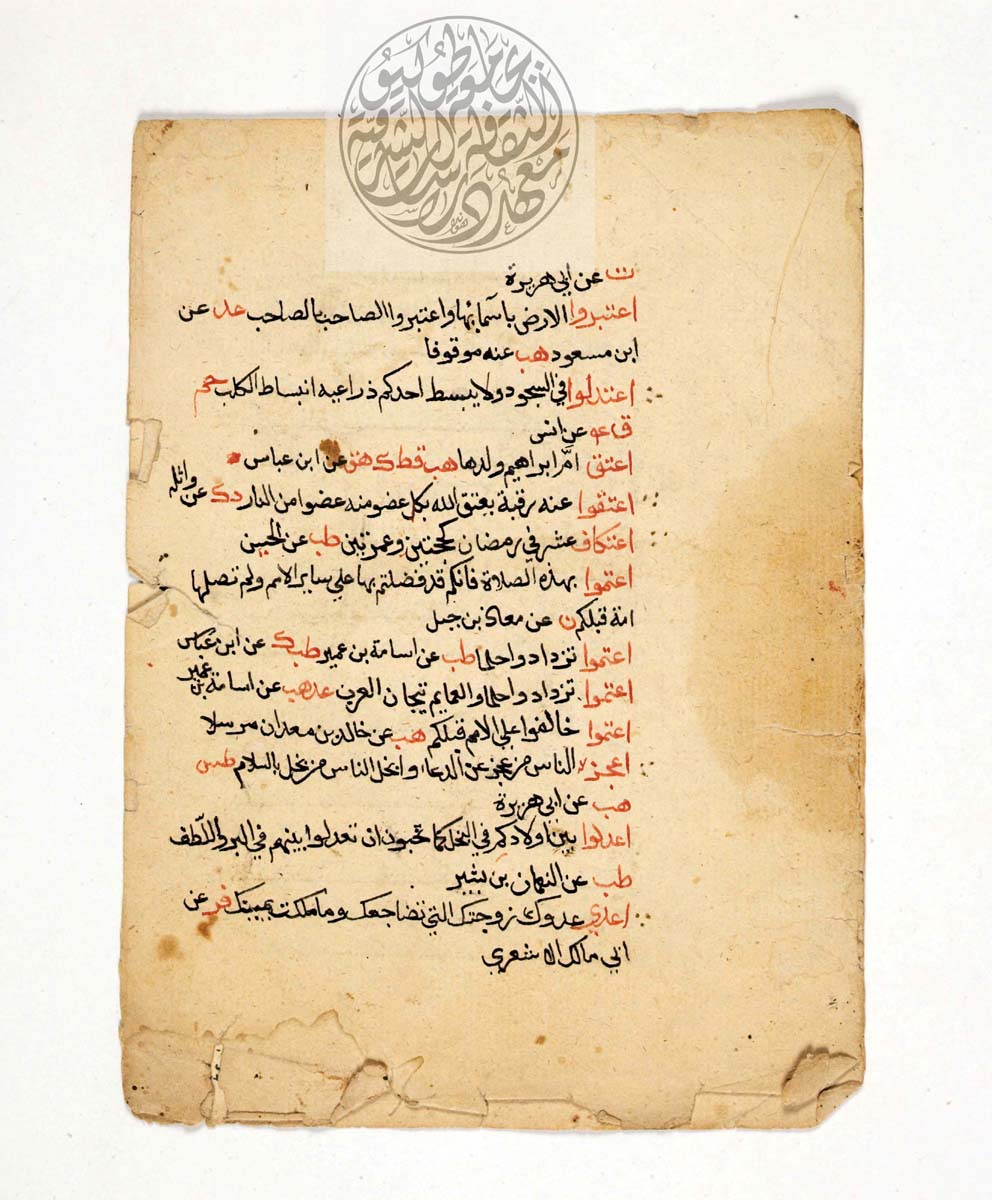 ت عن ابي هريرة
اعتبروا الارض باسمائها واعتبروا الصاحب بالصاحب عد عن
ابن مسعود هب عنه موقوفا
اعتدلوا في السجود ولا يبسط احدكم ذراعيه انبساط الكلب حم
ق عو عن انس
اعتق امَّ ابراهيم ولدها هب قط ك هق عن ابن عباس
اعتقوا عنه رقبة يعتق الله بكل عضو منه عضوا من النار د ك عن واثله
اعتكاف عشر في رمضان كحجتين وعمرتين طب عن الحسين
اعتموا بهذه الصلاة فانكم قد فضلتم بها علي ساير الامم ولم تصلها
امة قبلكم ن عن معاذ بن جبل
اعتموا تزدادوا حلما طب عن اسامة بن عمير طب ك عن ابن عباس
اعتموا تزدادوا حلما والعمايم تيجان العرب عد هب عن اسامة بن عمير
اعتموا خالفوا علي الامم قبلكم هب عن خالد بن معدان مرسلا
اعجز الناس من عجز عن الدعاء وابخل الناس من بخل بالسلام طس
هب عن ابي هريرة
اعدلوا بين اولادكم في النحل كما تحبون ان تعدلوا بينهم في البر واللّطف
طب عن النعمان بن بشير
اعدي عدوك زوجتك التي تضاجعك وما ملكت يمينك فر عن
ابي مالك الاشعري